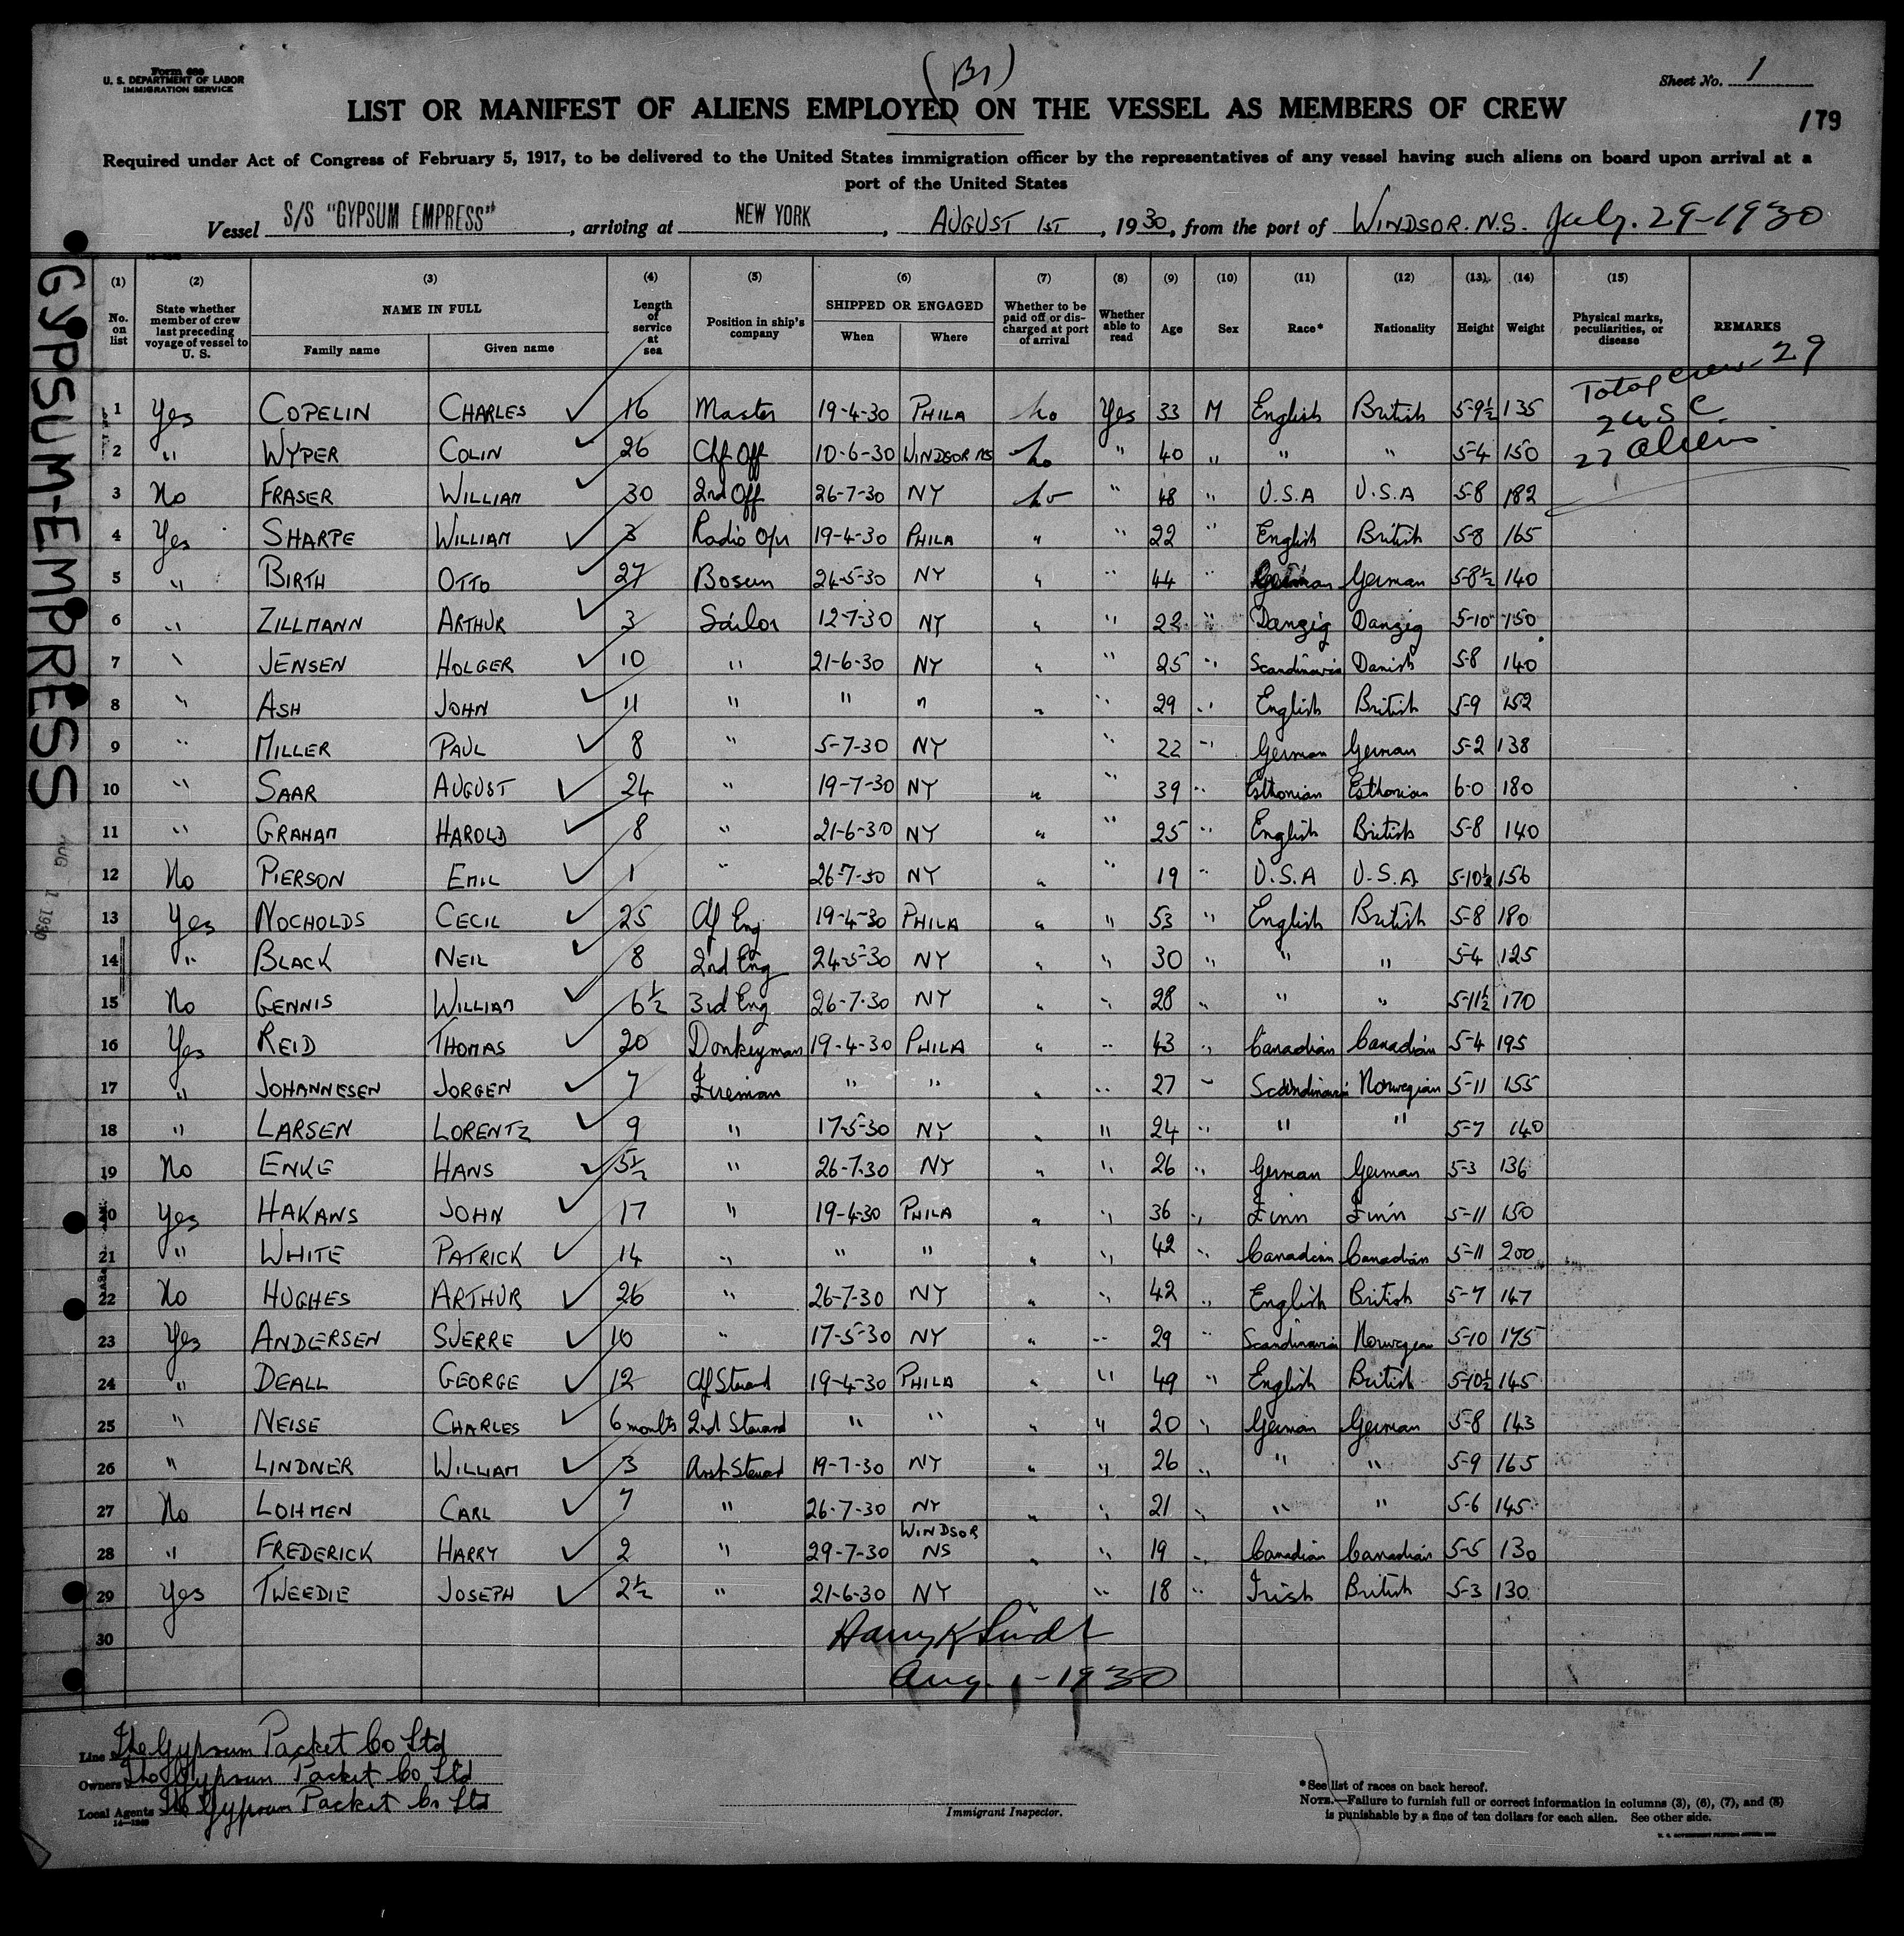 Form 689
U. S. DEPARTMENT OF LABOR
IMMIGRATION SERVICE
Sheet No. 1
179
LIST OR MANIFEST OF ALIENS EMPLOYED ON THE VESSEL AS MEMBERS OF CREW
Required under Act of Congress of February 5, 1917, to be delivered to the United States immigration officer by the representatives of any vessel having such aliens on board upon arrival at a
port of the United States
Vessel S/S "GYPSUM EMPRESS", arriving at NEW YORK, AUGUST 1ST, 1930, from the port of WINDSOR. N.S. July. 29-1930
GYPSUM-EMPRESS
AUG 1 1930
(1) (2) (3) (4) (5) (6) (7) (8) (9) (10) (11) (12) (13) (14) (15)
No. on list State whether member of crew last preceding voyage of vessel to U. S. NAME IN FULL Family name Given name Length of service at sea Position in ship's company SHIPPED OR ENGAGED When Where Whether to be paid off or discharged at port of arrival Whether able to read Age Sex Race* Nationality Height Weight Physical marks, peculiarities, or disease REMARKS
Total crew 29
2 USC
27 aliens
1 Yes COPELIN CHARLES ✓ 16 Master 19-4-30 PHILA no Yes 33 M English British 5-9½ 135
2 " WYPER COLIN ✓ 26 Chf Off 10-6-30 WINDSOR NS no " 40 " " " 5-4 150
3 No FRASER WILLIAM ✓ 30 2nd Off 26-7-30 NY no " 48 " U.S.A U.S.A 5-8 182
4 Yes SHARPE WILLIAM ✓ 3 Radio Opr 19-4-30 PHILA " " 22 " English British 5-8 165
5 " BIRTH OTTO ✓ 27 Bosun 24-5-30 NY " " 44 " German German 5-8½ 140
6 " ZILLMANN ARTHUR ✓ 3 Sailor 12-7-30 NY " " 22 " Danzig Danzig 5-10 150
7 " JENSEN HOLGER ✓ 10 " 21-6-30 NY " " 25 " Scandinavia Danish 5-8 140
8 " ASH JOHN ✓ 11 " " " " " 29 " English British 5-9 152
9 " MILLER PAUL ✓ 8 " 5-7-30 NY " 22 " German German 5-2 138
10 " SAAR AUGUST ✓ 24 " 19-7-30 NY " " 39 " Esthonian Esthonian 6-0 180
11 " GRAHAM HAROLD ✓ 8 " 21-6-30 NY " " 25 " English British 5-8 140
12 No PIERSON EMIL ✓ 1 " 26-7-30 NY " " 19 " U.S.A U.S.A 5-10½ 156
13 Yes NOCHOLDS CECIL ✓ 25 Cf Eng 19-4-30 PHILA " " 53 " English British 5-8 180
14 " BLACK NEIL ✓ 8 2nd Eng 24-5-30 NY " " 30 " " " 5-4 125
15 No GENNIS WILLIAM ✓ 6½ 3rd Eng 26-7-30 NY " " 28 " " " 5-11½ 170
16 Yes REID THOMAS ✓ 20 Donkeyman 19-4-30 PHILA " " 43 " Canadian Canadian 5-4 195
17 " JOHANNESEN JORGEN ✓ 7 Fireman " " " " 27 " Scandinavia Norwegian 5-11 155
18 " LARSEN LORENTZ ✓ 9 " 17-5-30 NY " " 24 " " " 5-7 140
19 No ENKE HANS ✓ 5½ " 26-7-30 NY " " 26 " German German 5-3 136
20 Yes HAKANS JOHN ✓ 17 " 19-4-30 PHILA " " 36 " Finn Finn 5-11 150
21 " WHITE PATRICK ✓ 14 " " " " " 42 " Canadian Canadian 5-11 200
22 No HUGHES ARTHUR ✓ 26 " 26-7-30 NY " " 42 " English British 5-7 147
23 Yes ANDERSEN SVERRE ✓ 10 " 17-5-30 NY " " 29 " Scandinavia Norwegian 5-10 175
24 " DEALL GEORGE ✓ 12 Cf Steward 19-4-30 PHILA " " 49 " English British 5-10½ 145
25 " NEISE CHARLES ✓ 6 months 2nd Steward " " " " 20 " German German 5-8 143
26 " LINDNER WILLIAM ✓ 3 Asst Steward 19-7-30 NY " " 26 " " " 5-9 165
27 No LOHMEN CARL ✓ 7 " 26-7-30 NY " " 21 " " " 5-6 145
28 " FREDERICK HARRY ✓ 2 " 29-7-30 WINDSOR NS " " 19 " Canadian Canadian 5-5 130
29 Yes TWEEDIE JOSEPH ✓ 2½ " 21-6-30 NY " " 18 " Irish British 5-3 130
30
Aug. 1-1930
Line The Gypsum Packet Co Ltd
Owners The Gypsum Packet Co Ltd
Local Agents The Gypsum Packet Co Ltd
14-1240
Immigrant Inspector.
*See list of races on back hereof.
NOTE.—Failure to furnish full or correct information in columns (3), (6), (7), and (8)
is punishable by a fine of ten dollars for each alien. See other side.